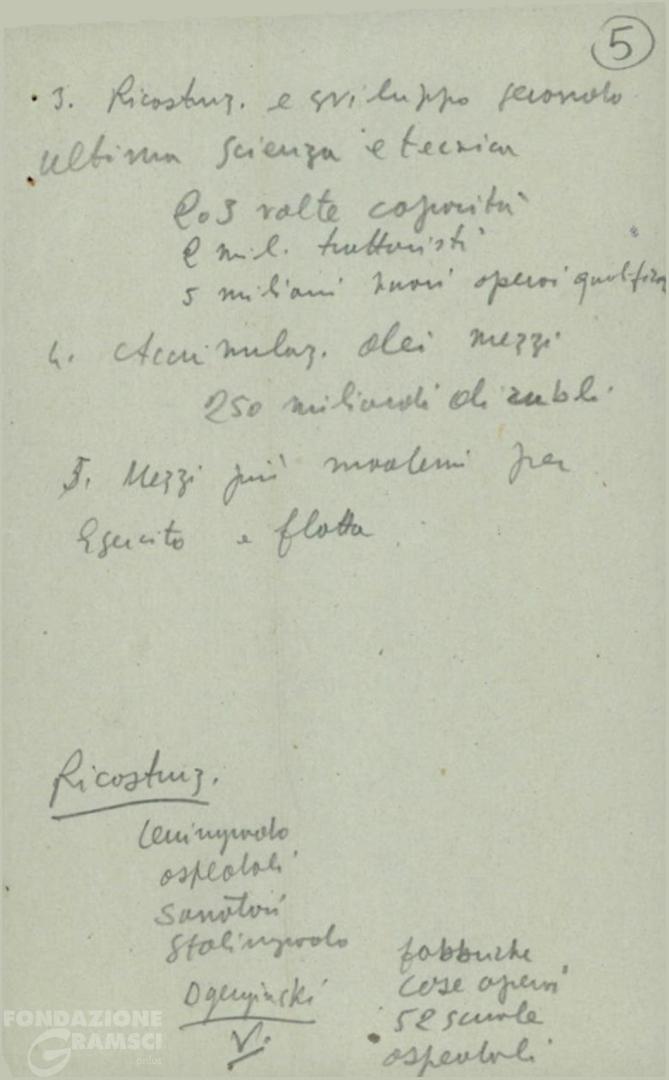 5
3. Ricostruz. e sviluppo secondo
ultima scienza e tecnica
2 o 3 volte capacità
2 mil. trattoristi
5 milioni nuovi operai qualifica
4. Accumulaz. dei mezzi
250 miliardi di rubli
5. Mezzi più moderni per
Esercito e flotta
Ricostruz.
Leningrado
ospedali
Sanatori
Stalingrado
fabbriche
case operai
52 scuole
ospedali
Dgerginski
V.
FONDAZIONE
GRAMSCI
onlus